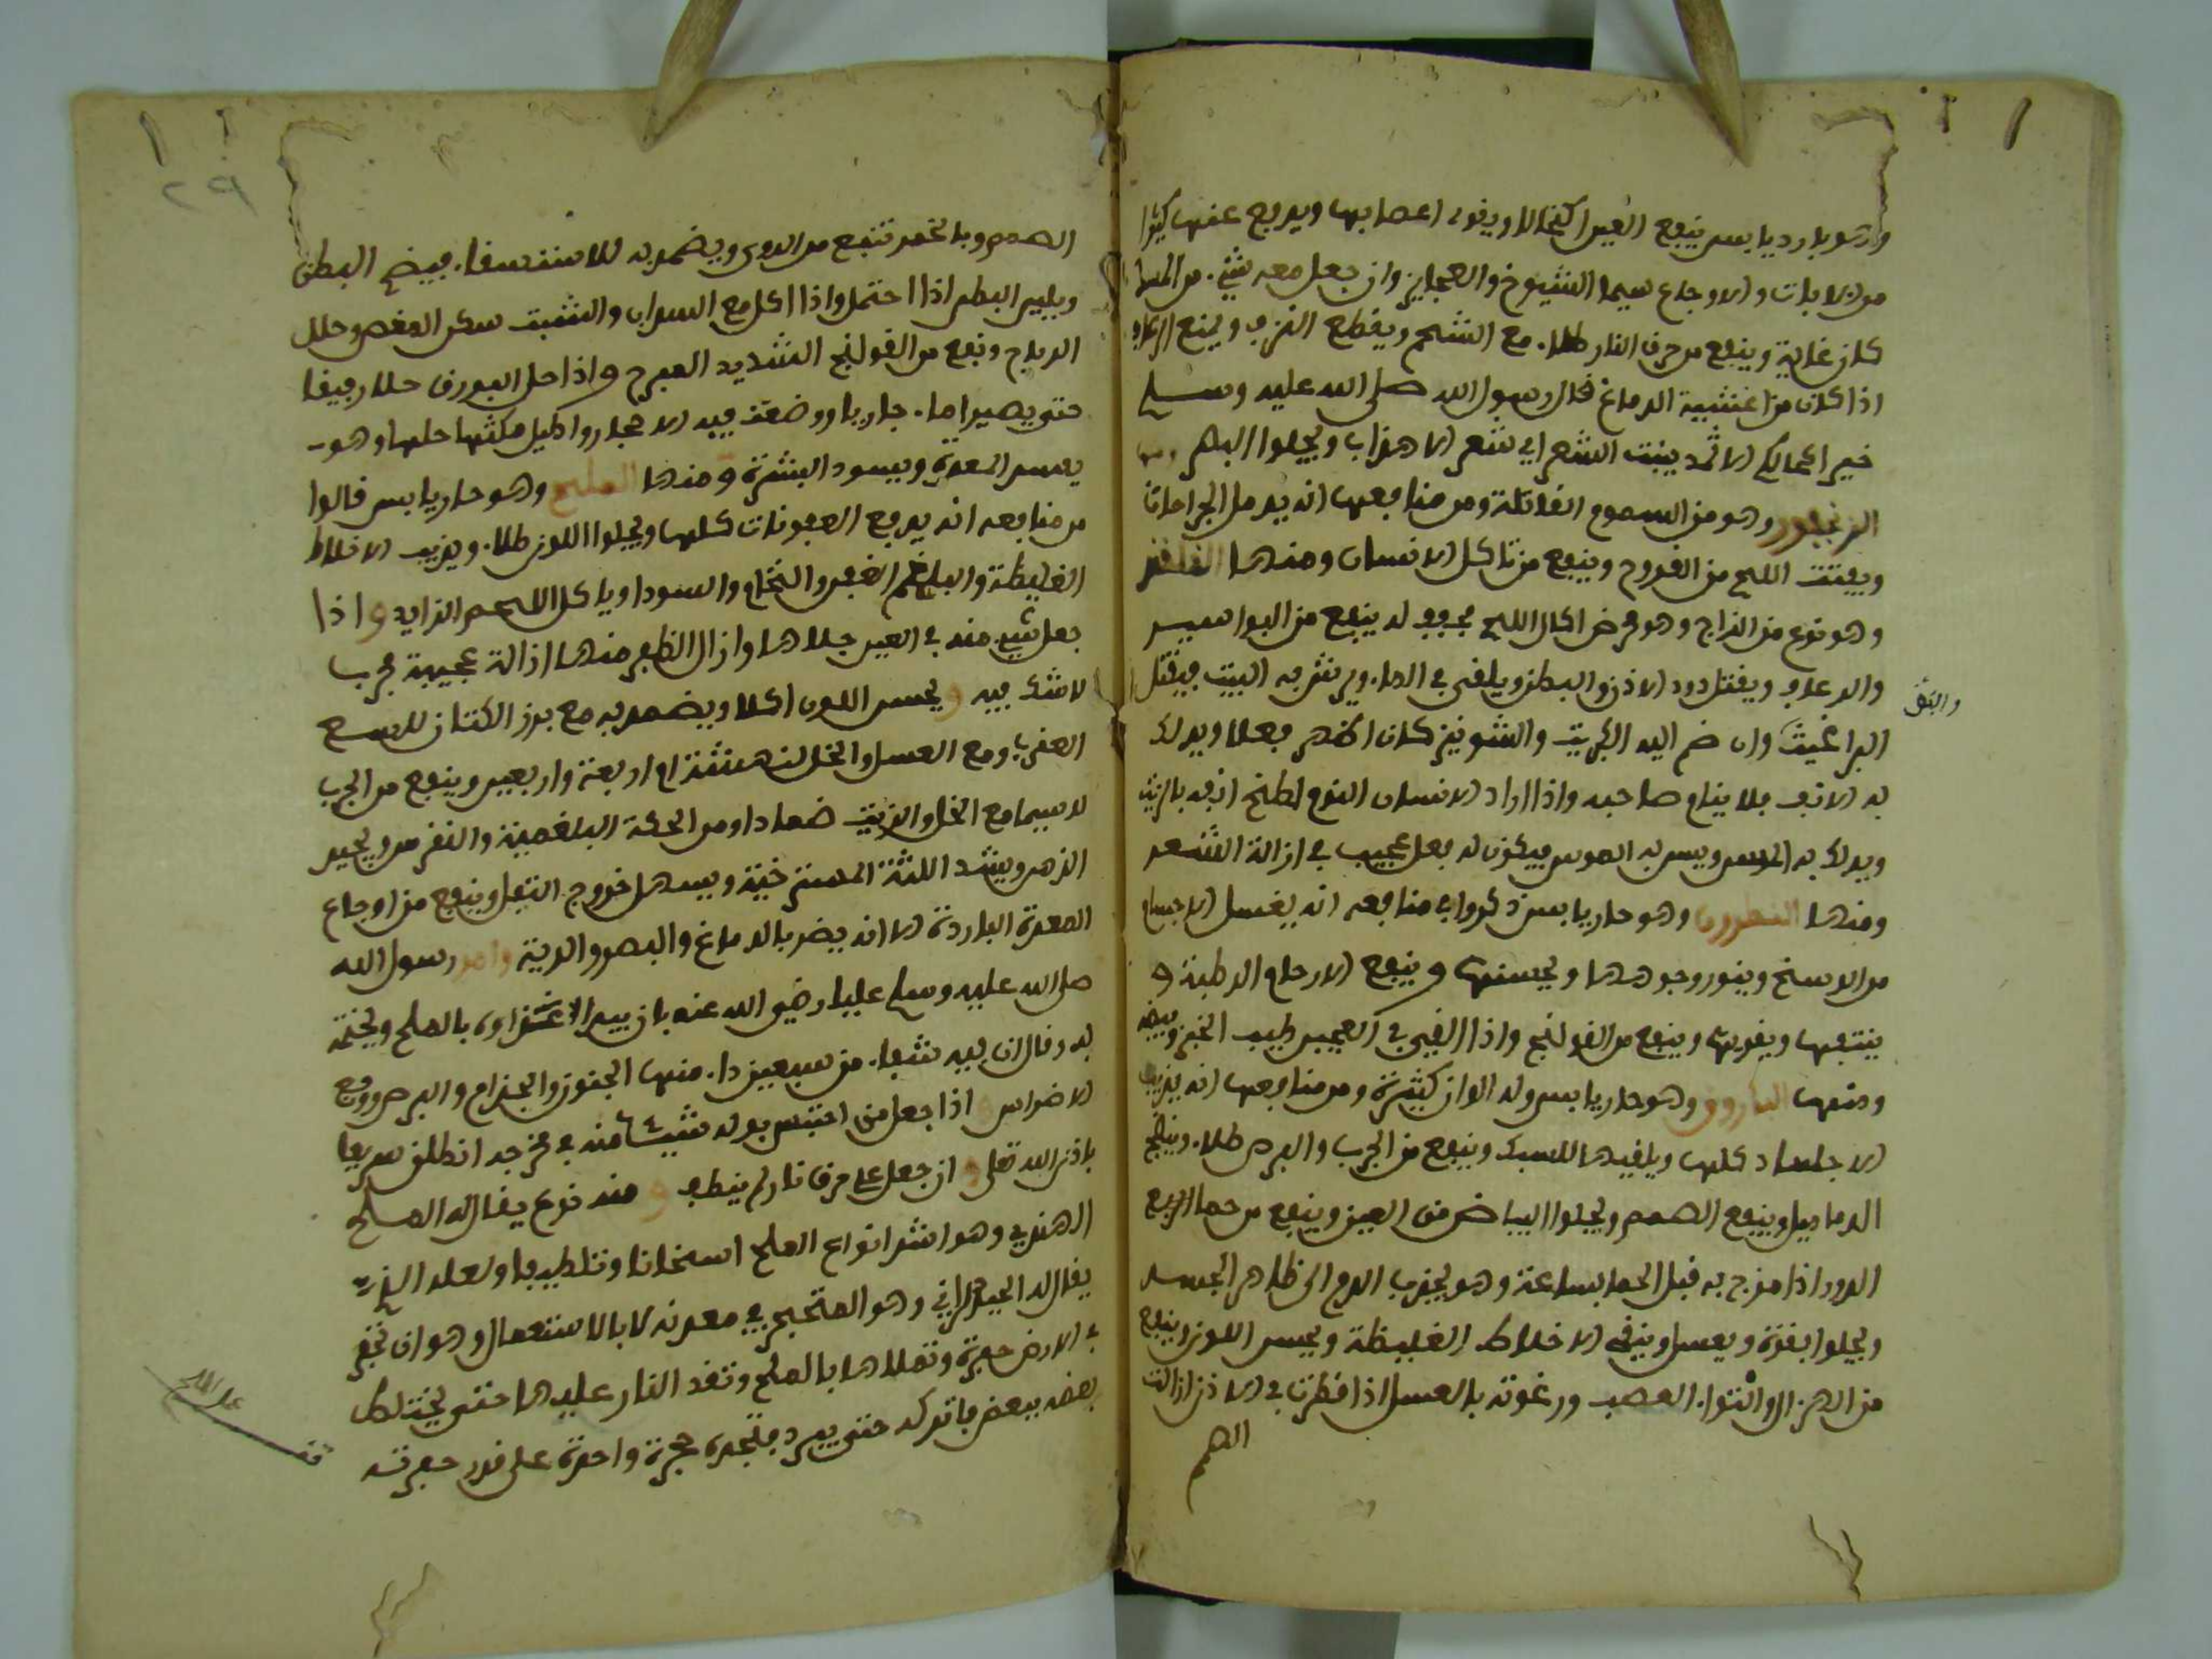 وهو بارد يابس ينفع العين اكتحالا ويقوي اعصابها ويدفع عنها كثيرا
من الافات والاوجاع سيما الشيوخ والعجايز وان جعل معه شيء من المسك
كان غاية وينفع من حرق النار طلاء مع الشحم ويقطع النزف ويمنع الرعاف
اذا كان من اغشية الدماغ قال رسول الله صلى الله عليه وسلم
خير اكحالكم الاثمد ينبت الشعر اي شعر الاهداب ويجلوا البصر ومنها
الزنجفور وهو من السموم القاتلة ومن منافعها انه يدمل الجراحات
ويفتت اللحم من القروح وينفع من تاكل الاسنان ومنها القلقند
وهو نوع من الزاج وهو قرض اكال اللحم مجفف له ينفع من البواسير
والرعاف ويقتل دود الاذن والبطن ويلقى في الماء ويرش به البيت فيقتل
البراغيث وان ضم اليه الكبريت والشونيز كان اكثر فعلا ويدلك
والبق
به الانف فلا ينام صاحبه واذا اراد الانسان النوم لطخ انفه بالزيت
ويدلك به المسن ويسن به الموس فيكون له فعل عجيب في ازالة الشعر
ومنها النطرون وهو حار يابس ذكروا في منافعه انه يغسل الاجسام
من الاوسخ وينور وجوهها ويحسنها وينفع الارحام الرطبة و
ينشفها ويقويها وينفع من القولنج واذا القي في العجين طيب الخبز وبيضه
ومنها البارود وهو حار يابس وله الوان كثيرة ومن منافعها انه يذيب
الاجساد كلها ويلقيها للسبك وينفع من الجرب والبرص طلاء وينضج
الدماميل وينفع الصمم ويجلوا البياض من العين وينفع من حما الربع
الدور اذا مزج به قبل الحما بساعة وهو يجذب الدم الى ظاهر الجسد
ويجلوا بقوة ويغسل وينقي الاخلاط الغليظة ويحسن اللون وينفع
من الهزال والتواء العصب ورغوته بالعسل اذا قطرت في الاذن ازالت
الصمم
٢٩
الصمم وبالخمر تنفع من الدوي ويضمد به للاستسقاء فيضم البطن
ويلين البطن اذا احتمل واذا اكل مع السداب والشبت سكن المغص وحلل
الرياح ونفع من القولنج الشديد المبرح واذا حل البورق حلا رقيقا
حتى يصير اما. جاريا ووضعت فيه الاحجار واطيل مكثها حلها وهو
يفسد المعدة ويسود البشرة ومنها الملح وهو حار يابس قالوا
من منافعه انه يدفع العفونات كلها ويجلوا اللون طلاء ويذيب الاخلاط
الغليظة والبلغم العفن والخام والسودا وياكل اللحم الزايد واذا
جعل شيء منه في العين جلاها وازال الظفر منها ازالة عجيبة مجرب
لا شك فيه ويحسن اللون اكلا ويضمد به مع بزر الكتان للسع
العقرب ومع العسل والخل لنهشة ام اربعة واربعين وينفع من الجرب
لا سيما مع الخل والزيت ضمادا ومن الحكة البلغمية والنقرس ويحير
الذهن ويشد اللثة المسترخية ويسهل خروج الثفل وينفع من اوجاع
المعدة الباردة الا انه يضر بالدماغ والبصر والرية وامر رسول الله
صلى الله عليه وسلم عليا رضي الله عنه بان يبدا عشاوه بالملح ويختمه
به وقال ان فيه شفاء من سبعين داء منها الجنون والجذام والبرص ووجع
الاضراس واذا جعل من احتبس بوله شيئا منه في مخرجه انطلق سريعا
باذن الله تعلى وان جعل على حرق نار لم ينطف ومنه نوع يقال له الملح
الهندي وهو اشد انواع الملح اسخانا وتلطيفا ولعله الذي
يقال له الحيدراني وهو المتحجر في معدنه لا بالاستعمال وهو ان تحفر
في الارض حفرة وتملاها بالملح وتقد النار عليها حتى يختلط
بعضه ببعض فاتركه حتى يبرد فتجده حجرة واحدة على قدر حفرته